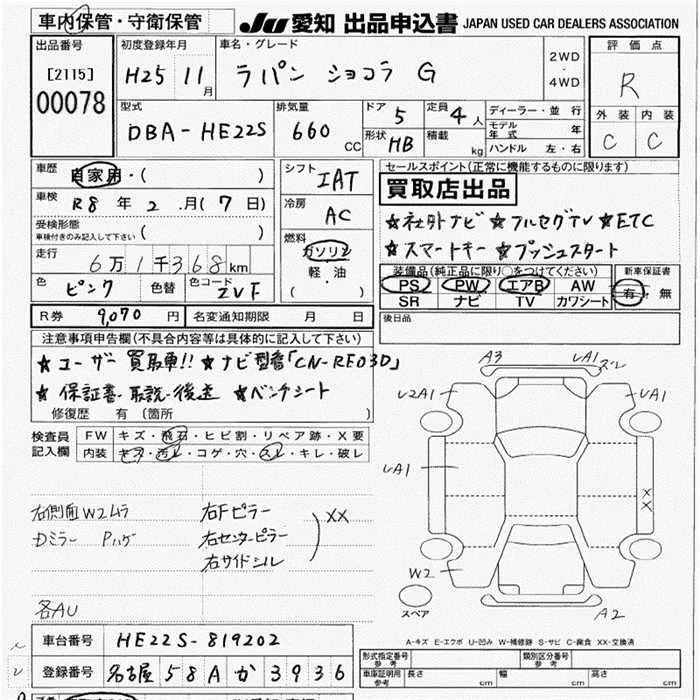 車内保管・守衛保管
JU 愛知 出品申込書 JAPAN USED CAR DEALERS ASSOCIATION
出品番号
[2115]
00078
初度登録年月
H25 11月
車名・グレード
ラパン ショコラ G
2WD
・
4WD
評価点
R
外装 内装
C C
型式
DBA-HE22S
排気量
660 cc
ドア 5
形状 HB
定員 4人
積載 kg
ディーラー・並行
モデル年式 年
ハンドル 左・右
車歴
自家用・( )
車検
R8年2月(7日)
受検形態
車検付きのみ記入して下さい ( )
走行
6万1千368km
色 ピンク 色替 色コード ZVF
シフト IAT
冷房 AC
燃料
ガソリン
軽油
( )
セールスポイント(正常に機能するものに限ります)
買取店出品
★社外ナビ ★フルセグTV ★ETC
★スマートキー ★プッシュスタート
装備品(純正品に限り○をつけてください)
PS PW エアB AW
SR ナビ TV カワシート
新車保証書
有・無
R券 9,070円 名変通知期限 月 日
後日品
注意事項申告欄(不具合内容等は具体的に記入して下さい)
★ユーザー買取車!! ★ナビ型番「CN-RE03D」
★保証書・取説・後送 ★ベンチシート
修復歴 有(箇所 )
検査員
記入欄
FW キズ・飛石・ヒビ割・リペア跡・X要
内装 キズ・汚レ・コゲ・穴・スレ・キレ・破レ
右側面W2ムラ
Dミラー Pハゲ
右Fピラー
右センターピラー
右サイドシル
XX
各AU
A3
UA1 ズレ
U2A1
UA1
UA1
XX
W2
A2
スペア
A-キズ E-エクボ U-凹み W-補修跡 S-サビ C-腐食 XX-交換済
車台番号 HE22S-819202
登録番号 名古屋 58A か 3936
形式指定番号
参考
類別区分番号
参考
車庫証明用
参考
長さ cm 幅 cm 高さ cm